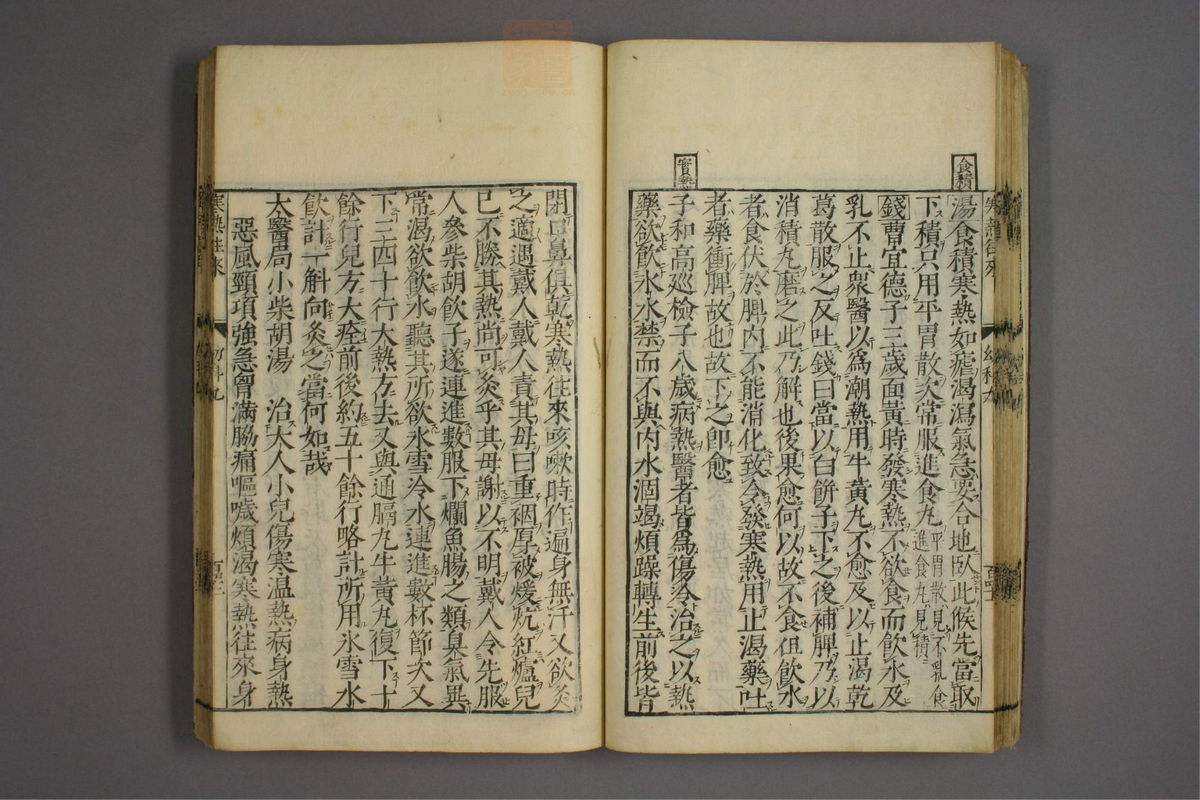 食積
湯食積寒熱如瘧渴瀉氣急要合地臥此候先當取
下積只用平胃散次常服進食丸平胃散見不乳食進食丸見積
錢曹宜德子三歲面黃時發寒熱不欲食而飲水及
乳不止衆醫以爲潮熱用牛黃丸不愈及以止渴乾
葛散服之反吐錢曰當以白餅子下之後補脾乃以
消積丸磨之此乃解也後果愈何以故不食但飲水
者食伏於脾內不能消化致令發寒熱用止渴藥吐
者藥衝脾故也故下之即愈
實熱
子和高巡檢子八歲病熱醫者皆爲傷冷治之以熱
藥欲飲水水禁而不與內水涸竭煩躁轉生前後皆
閉口鼻俱乾寒熱往來咳嗽時作遍身無汗又欲灸
之適遇戴人戴人責其母曰重裀厚被煖炕紅爐兒
已不勝其熱尚可灸乎其母謝以不明戴人令先服
人參柴胡飲子遂連進數服下爛魚腸之類臭氣異
常渴欲飲水聽其所欲氷雪冷水連進數杯節次又
下三四十行大熱方去又與通膈丸牛黃丸復下十
餘行兒方大痊前後約五十餘行略計所用氷雪水
飲計一斛向灸之當何如哉
太醫局小柴胡湯 治大人小兒傷寒溫熱病身熱
惡風頸項強急胷滿脇痛嘔噦煩渴寒熱往來身
寒熱往來
幼科九